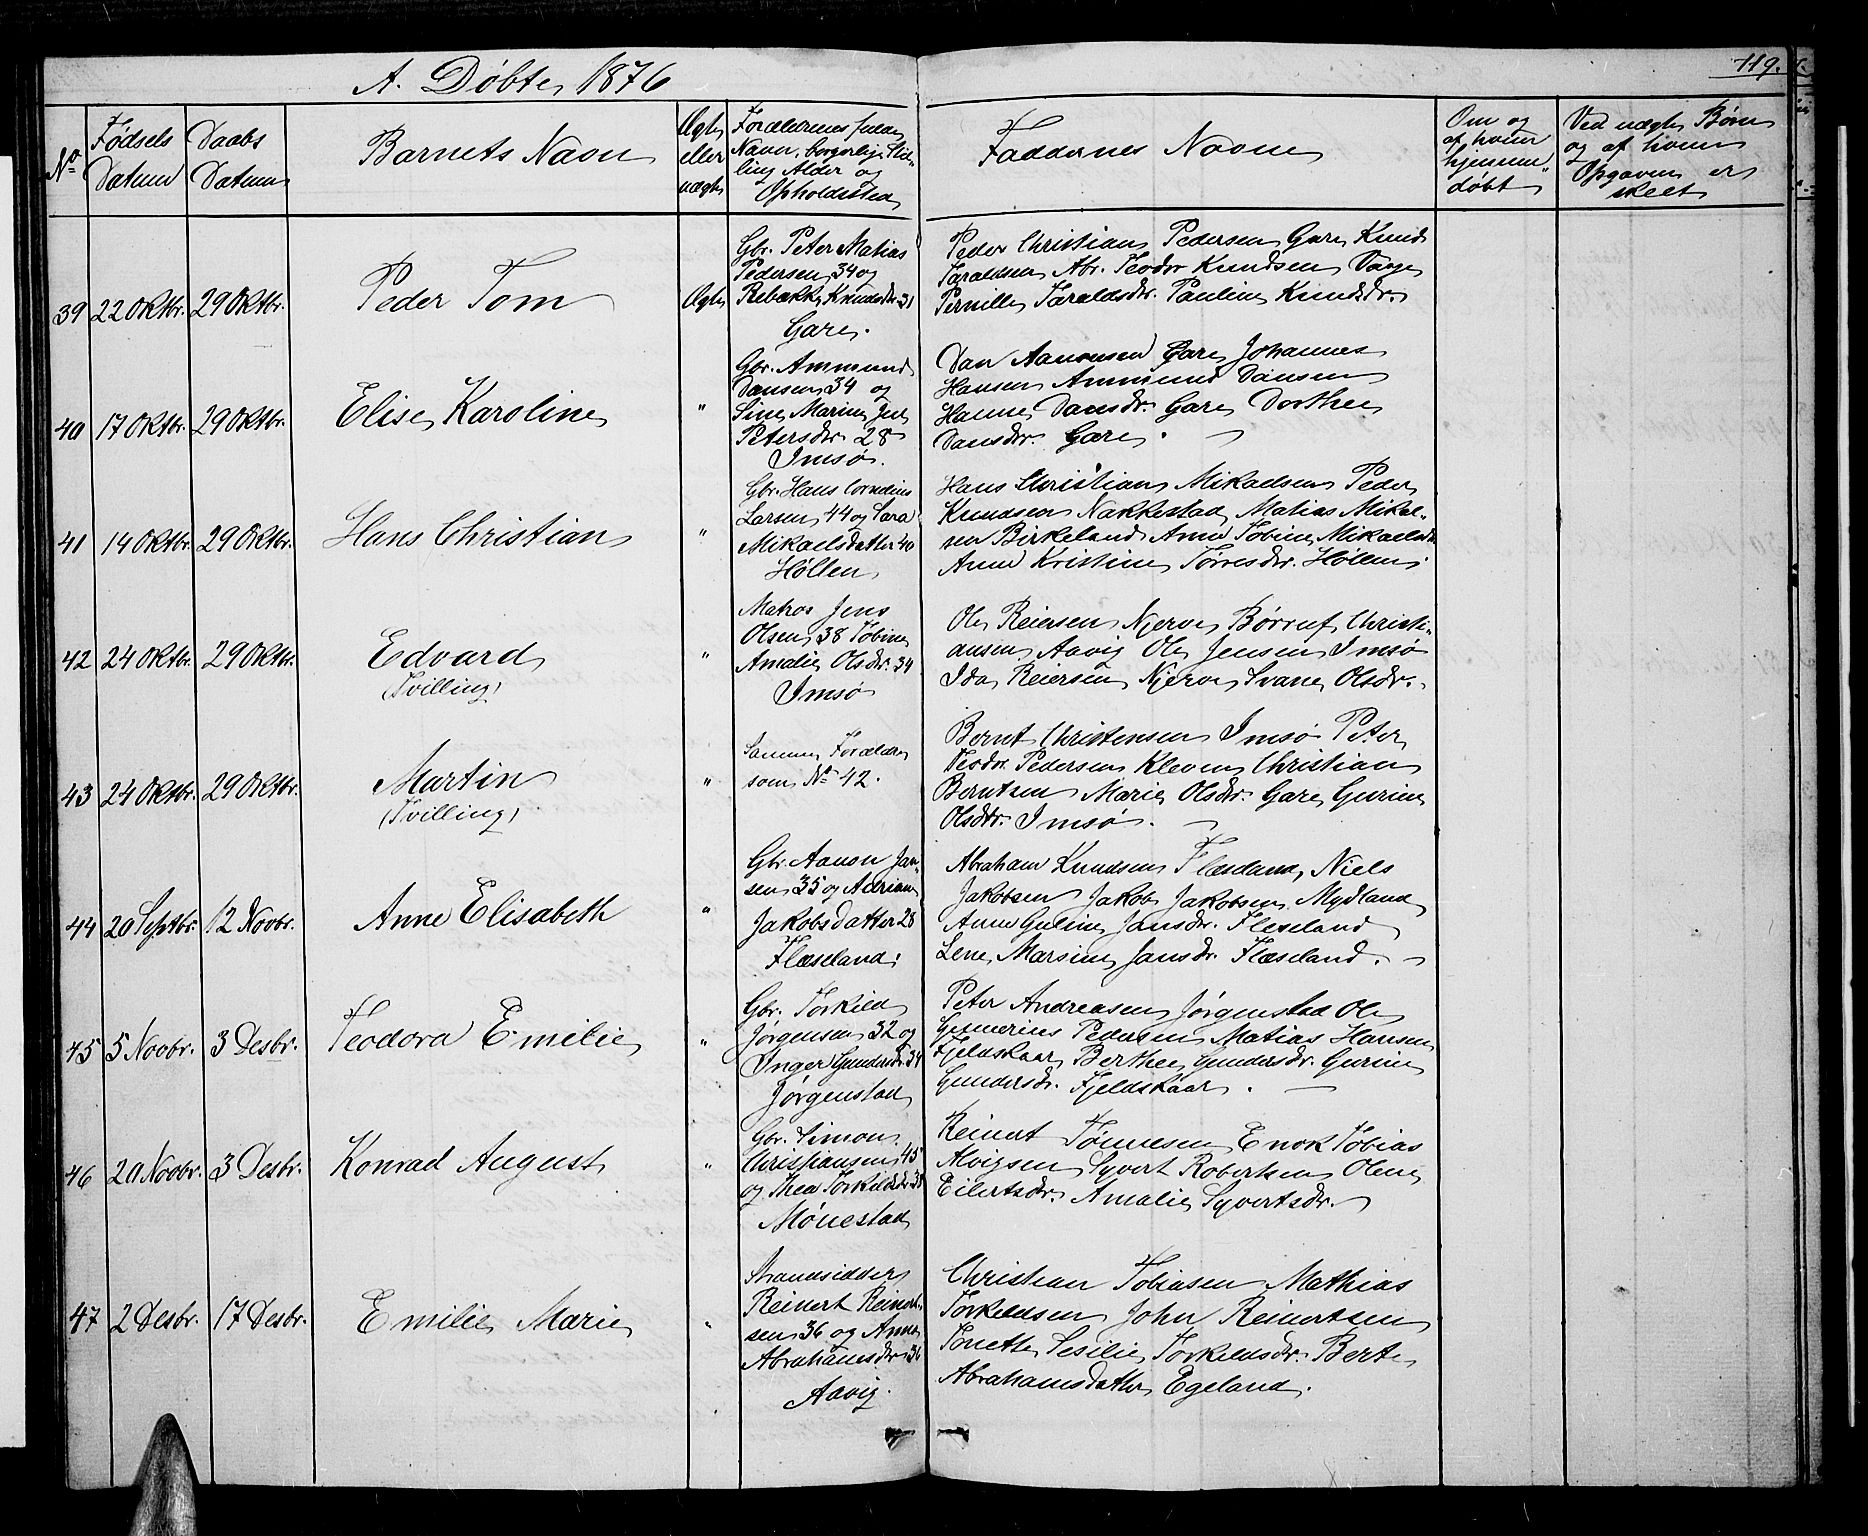 A. Døbte 1876
119.
No
Fødsels Datum
Daabs Datum
Barnets Navn
Ægte eller uægte
Forældrenes fulde Navn, borgerlige Stilling Alder og Opholdssted
Faddernes Navne
Om og af hvem hjemmedøbt
Ved uægte Børn og af hvem Opgaven er skeet
39 22 Oktbr. 29 Oktbr. Peder Tom Ægte
Gbr. Peter Matias
Pedersen 34 og
Rebække Knudsdr. 31
Gare.
Peder Christian Pedersen Gare Knud
Taraldsen Abr. Teodor Knudsen Vaage
Pernille Taraldsdr. Pauline Knudsdr.
40 17 Oktbr. 29 Oktbr. Elise Karoline "
Gbr. Ammund
Dansen 34 og
Sine Marine Jens
Petersdr. 28
Imsø.
Dan Aanensen Gare Johannes
Hansen Ammund Dansen
Hanne Dansdr. Gare Dorthee
Dansdr. Gare.
41 14 Oktbr. 29 Oktbr. Hans Christian "
Gbr. Hans Cornelius
Larsen 44 og Sara
Mikaelsdatter 40
Höllen
Hans Christian Mikaelsen Peder
Knudsen Nakkestad Matias Mikal-
sen Birkeland Anne Tobine Mikaelsdr.
Anne Kristine Tørresdr. Höllen.
42 24 Oktbr. 29 Oktbr. Edvard "
(Tvilling)
Matros Jens
Olsen 38 Tobine
Amalie Olsdr. 34
Imsø
Ole Reiersen Njerve Børruf Christi-
ansen Aavig Ole Jensen Imsø
Ida Reiersen Njerve Svane Olsdr.
43 24 Oktbr. 29 Oktbr. Martin "
(Tvilling)
Samme Forældre
som No 42.
Bernt Christensen Imsø Peter
Teodor Pedersen Kleven Christian
Berntsen Marie Olsdr. Gare Gurine
Olsdtr. Imsø.
44 20 Septbr. 12 Novbr. Anne Elisabeth "
Gbr. Aanen Jan-
sen 35 og Adriane
Jakobsdatter 28
Flæseland.
Abraham Knudsen Flæseland, Niels
Jakobsen Jakob Jakobsen Mydland
Anne Guline Jansdr. Fleseland
Lene Marsine Jansdr. Flæseland.
45 5 Novbr. 3 Desbr. Teodora Emilie "
Gbr. Torkild
Jørgensen 32 og
Inger Gundersdr. 34
Jørgenstad
Peter Andreasen Jørgenstad Ole
Gumerius Pedersen Matias Hansen
Fjeldskaar Berthee Gundersdr. Gurine
Gundersdr. Fjeldskaar.
46 20 Novbr. 3 Desbr. Konrad August "
Gbr. Simon
Christiansen 45
og Thea Torkildsdr. 38
Mönestad
Reinert Tönnesen Enok Tobias
Alvigsen Syvert Robertsen Olene
Eilertsdr. Amalie Syvertsdr.
47 2 Desbr. 17 Desbr. Emilie Marie "
Strandsidder
Reinert Reinert-
sen 36 og Anne
Abrahamsdr. 36
Aavig.
Christian Tobiasen Mathias
Torkeldsen John Reinertsen
Tonette Sesilie Torkeldsdr. Berte
Abrahamsdatter Egeland.